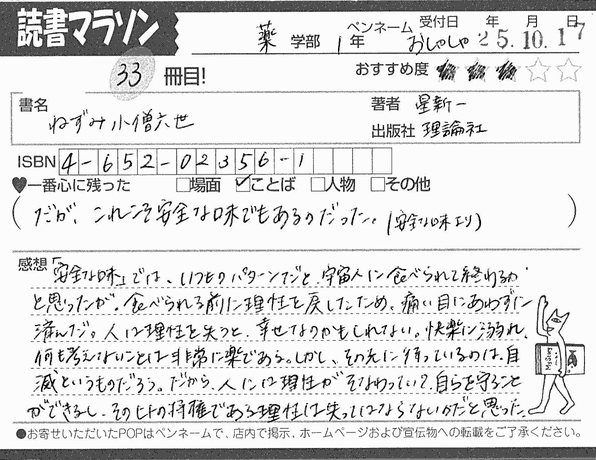 読書マラソン
薬 学部 1年 ペンネーム おしゃしゃ 受付日 25年 10月 17日
33冊目! おすすめ度 ★★★☆☆
書名 ねずみ小僧六世
著者 星新一
出版社 理論社
ISBN 4-652-02356-1
♥一番心に残った □場面 ☑ことば □人物 □その他
(だが、これこそ安全な味でもあるのだった。(安全な味より))
感想 「安全な味」では、いつものパターンだと、宇宙人に食べられて終わるか
と思ったが。食べられる前に理性を戻したため、痛い目にあわずに
済んだ。人は理性を失うと、幸せなのかもしれない。快楽に溺れ、
何も考えないことは非常に楽である。しかし、その先に待っているのは、自
滅というものだろう。だから、人には理性がそなわっていて、自らを守ること
ができるし、そのヒトの特権である理性は失ってはならないのだと思った。
●お寄せいただいたPOPはペンネームで、店内で掲示、ホームページおよび宣伝物への転載をご了承ください。